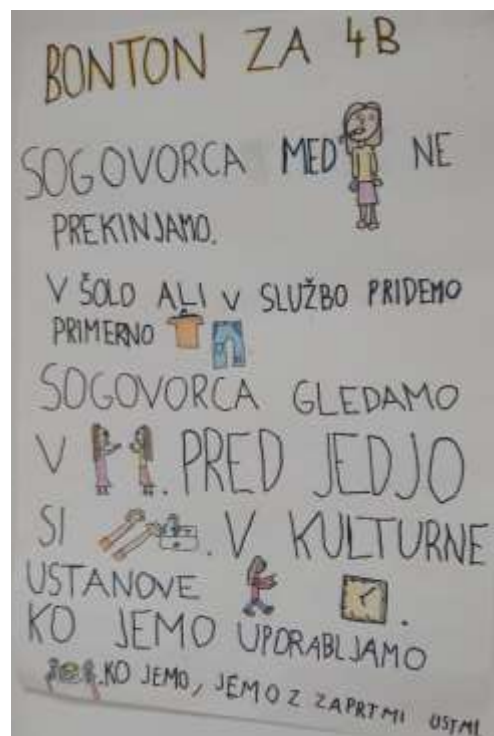 BONTON ZA 4B
SOGOVORCA MED NE
PREKINJAMO.
V ŠOLO ALI V SLUŽBO PRIDEMO
PRIMERNO
SOGOVORCA GLEDAMO
V . PRED JEDJO
SI . V KULTURNE
USTANOVE .
KO JEMO UPORABLJAMO
. KO JEMO, JEMO Z ZAPRTMI USTMI